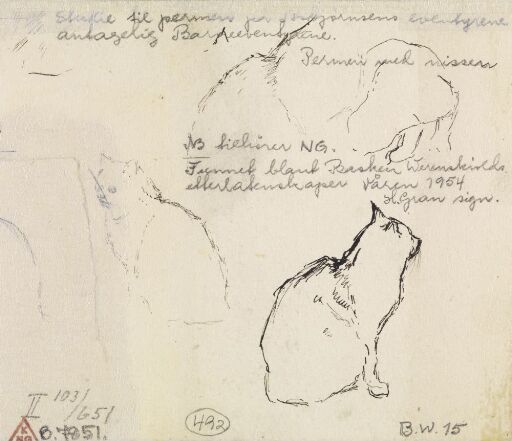 Studie til permen på Asbjørnsens eventyrene
antagelig Barneeventyrene.
Permen med nissen
NB tilhører NG.
Funnet blant Basken Werenskiolds
etterlatenskaper våren 1954
H. Gran sign.
II 103/
/651
K
NG
B.7851.
492
B.W. 15